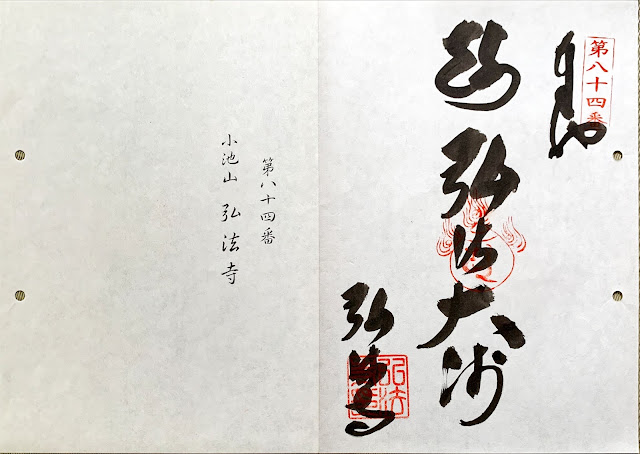 第八十四番
弘法大師
弘法寺
第八十四番
小池山 弘法寺